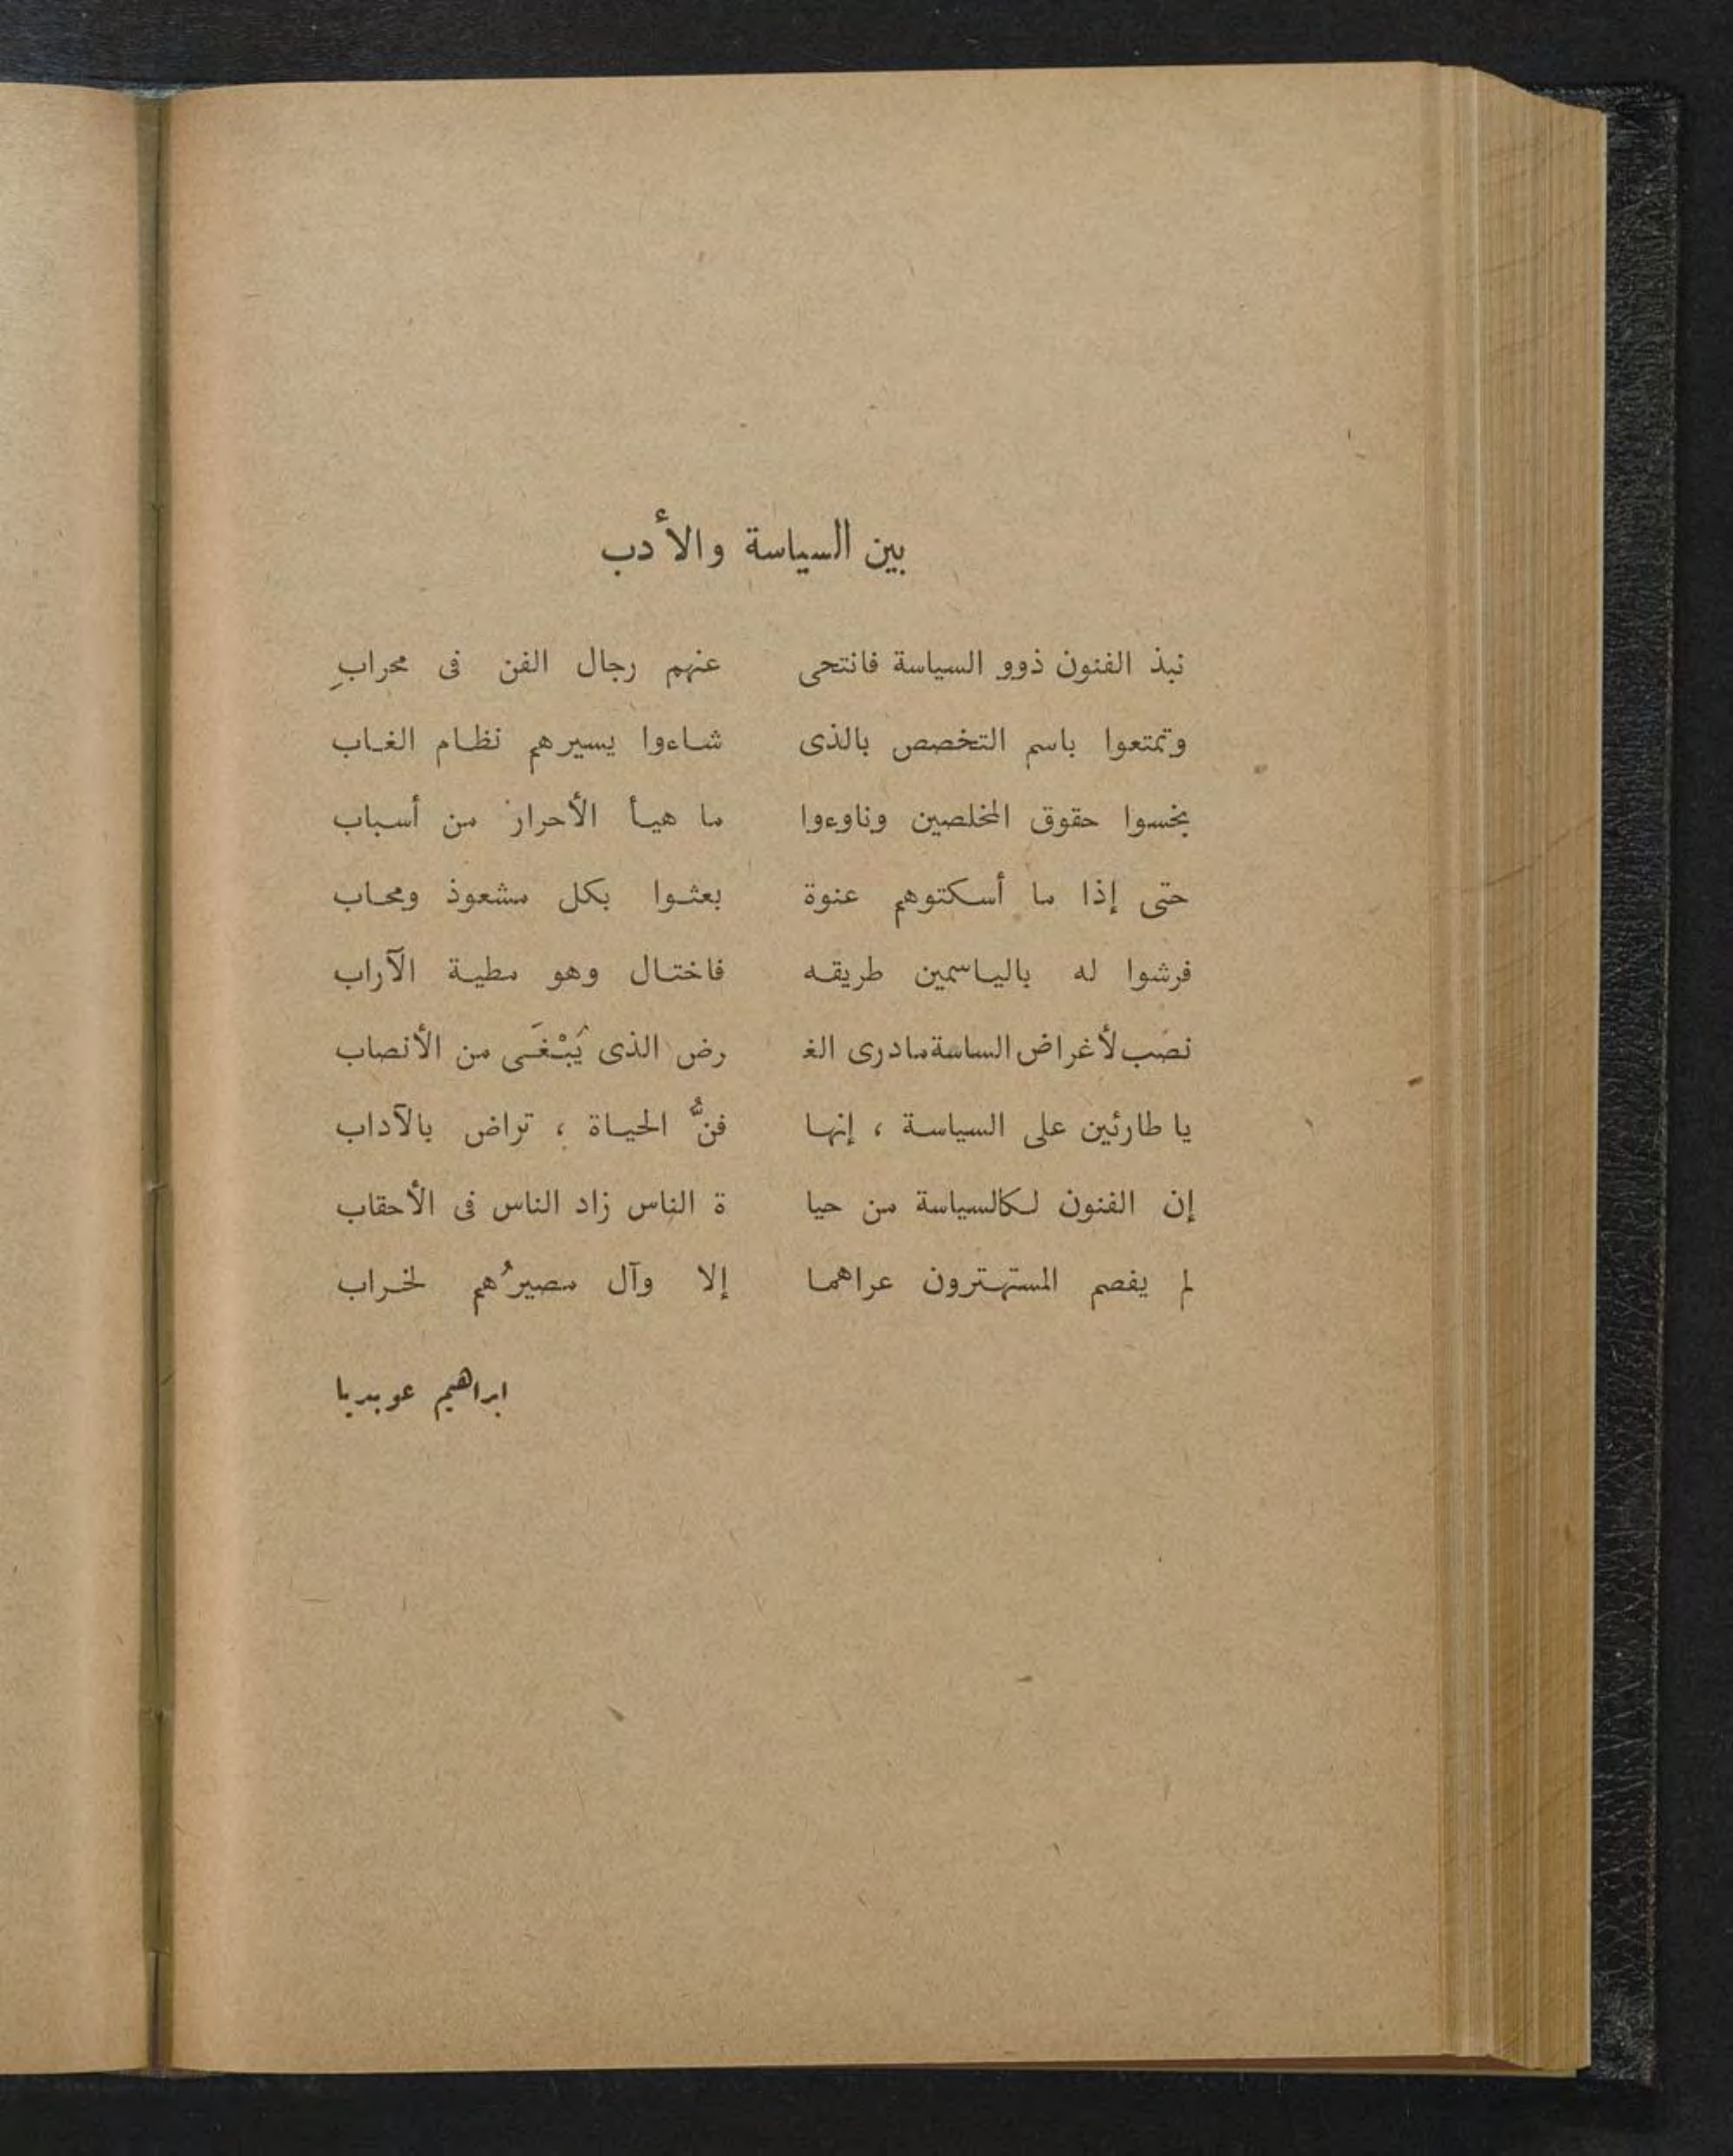 بين السياسة والأدب
نبذ الفنون ذوو السياسة فانتحى عنهم رجال الفن فى محرابِ
وتمتعوا باسم التخصص بالذى شاءوا يسيرهم نظام الغاب
بخسوا حقوق المخلصين وناوءوا ما هيأ الأحرار من أسباب
حتى إذا ما أسكتوهم عنوة بعثوا بكل مشعوذ ومحاب
فرشوا له بالياسمين طريقه فاختال وهو مطية الآراب
نصب لأغراض الساسة مادرى الغـ رض الذى يُبْغَى من الأنصاب
يا طارئين على السياسة ، إنها فنُّ الحياة ، تراض بالآداب
إن الفنون لكالسياسة من حيا ة الناس زاد الناس فى الأحقاب
لم يفصم المستهترون عراهما إلا وآل مصيرُهم لخراب
ابراهيم عوبديا